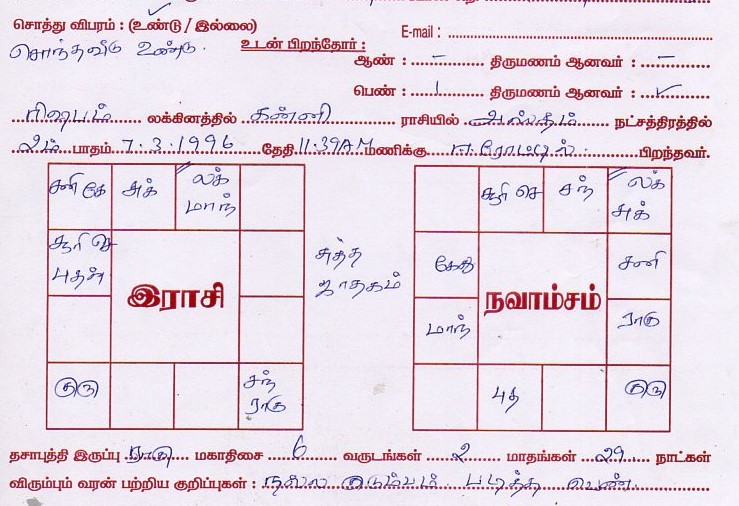 சொத்து விபரம் : (உண்டு / இல்லை) ✓
E-mail :
சொந்தவீடு உண்டு.
உடன் பிறந்தோர் :
ஆண் : – திருமணம் ஆனவர் : –
பெண் : 1 திருமணம் ஆனவர் : ✓
ரிஷபம் லக்கினத்தில் கன்னி ராசியில் அஸ்தம் நட்சத்திரத்தில்
2ம் பாதம் 7.3.1996 தேதி 11.39AM மணிக்கு ஈரோட்டில் பிறந்தவர்.
சனி கே சுக் லக் மாந்
சூரி செ புதன்
இராசி
குரு சந் ராகு
சுத்த ஜாதகம்
சூரி செ சந் லக் சுக்
கேது சனி
நவாம்சம்
மாந் ராகு
புத குரு
தசாபுத்தி இருப்பு மகாதிசை 6 வருடங்கள் 2 மாதங்கள் 29 நாட்கள்
விரும்பும் வரன் பற்றிய குறிப்புகள் : நல்ல குடும்பம் படித்த பெண்.